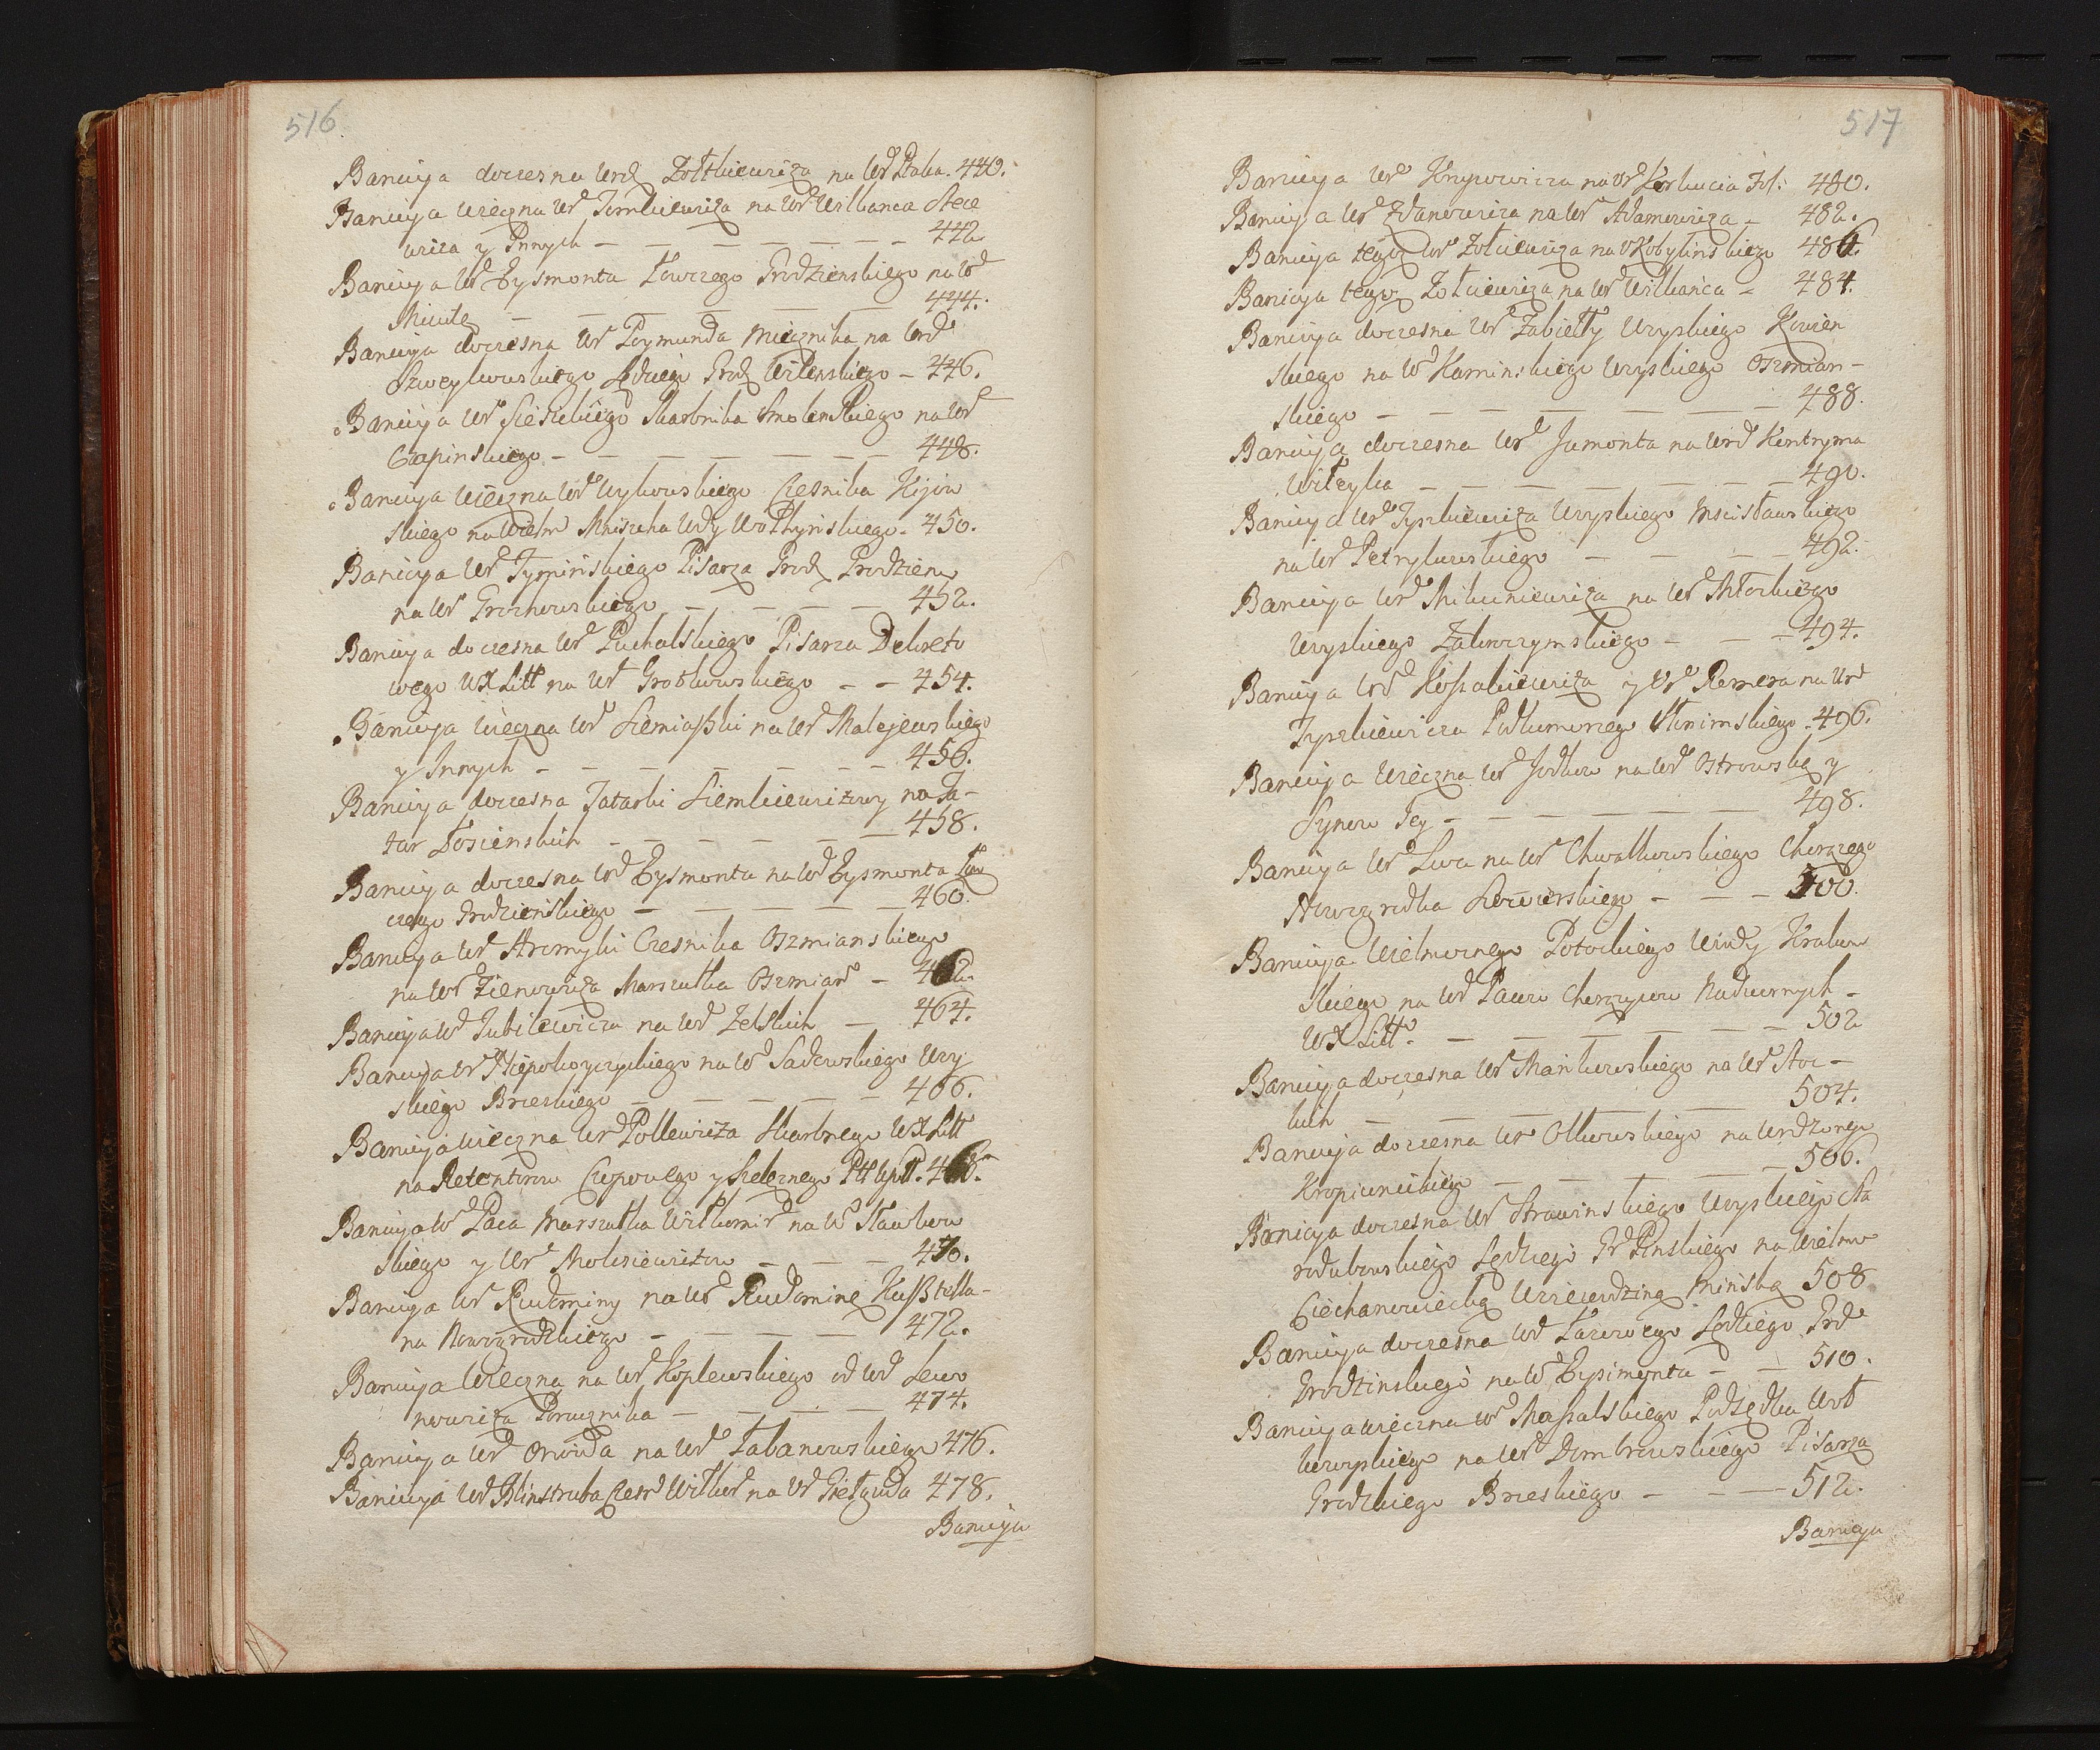 516
Banicya doczesna Urdz Zołtkiewicza na Ur Ptaka. 440.
Banicya wieczna Ur Tomkiewicza na Ur Urbanca Stece
wicza y Innych — 442
Banicya Ur Eysmonta Łowczego Grodzienskiego na Ur
Micutę — 444.
Banicya doczesna Ur Poymunda Miecznika na Urd
Szweykowskiego Sędziego Grodz Wilenskiego — 446.
Banicya Ur Siesickiego Skarbnika Smolenskiego na Ur
Czapinskiego — 448.
Banicya wieczna Ur Wykowskiego Czesnika Kijow
skiego na Wielm Mniszcha Wdy Wołhynskiego. 450.
Banicya Ur Tyminskiego Pisarza Grodz Grodzien
na Ur Grochowskiego — 452.
Banicya doczesna Ur Puchalskiego Pisarza Dekreto
wego WX Litt na Ur Grotkowskiego — 454.
Banicya wieczna Ur Siemiaszki na Ur Malejewskiego
y Innych — 456.
Banicya doczesna Tatarki Siemkiewiczowy na Ta-
tar Łosienskich — 458.
Banicya doczesna Ur Eysmonta na Ur Eysmonta Łow
czego Grodzienskiego — 460.
Banicya Ur Hromyki Czesnika Oszmianskiego
na Ur Zienowicza Marszałka Oszmian — 462.
Banicya Ur Jubilewicza na Ur Zelskich — 464.
Banicya Ur Niepokoyczyckiego na Ur Sadowskiego Woy
skiego Brzeskiego — 466.
Banicya wieczna Ur Pollewicza Skarbnego WX Litt
na Retentorow Czopowego y Szelężnego 468.
Banicya Ur Paca Marszałka Wiłkomir na Ur Stawkow
skiego y Ur Mokrzewiczow — 470.
Banicya Ur Rudominy na Ur Rudominę Kasztella-
na Nowogrodzkiego — 472.
Banicya Wieczna na Ur Koplewskiego od Ur Lewo
nowicza Porucznika — 474.
Banicya Ur Onoida na Ur Łabanowskiego 476.
Banicya Ur Blinstruba Czesn Wiłkom na Ur Giełguda 478.
Banicya
517
Banicya Ur Krypowicza na Ur Korkucia Fol: 480.
Banicya Ur Zdanowicza na Ur Adamowicza — 482.
Banicya tegoż Ur Zołciewicza na Kobylinskiego 486.
Banicya tegoż Zołciewicza na Ur Urbanca — 484.
Banicya doczesna Ur Zabiełły Woyskiego Kowien
skiego na Ur Kaminskiego Woyskiego Oszmian-
skiego — 488.
Banicya doczesna Ur Jamonta na Urd Kontryma
Witeyka — 490.
Banicya Ur Tyszkiewicza Woyskiego Mscisławskiego
na Ur Petrykowskiego — 492.
Banicya Ur Mikuniewicza na Ur Młockiego
Woyskiego Zakroczymskiego — 494.
Banicya Urd Kossakiewicza y Ur Remera na Urd
Tyszkiewicza Podkomorzego Słonimskiego. 496.
Banicya Wieczna Ur Jodkow na Ur Ostrowską y
Synow Jey — 498.
Banicya Ur Lwa na Ur Chwalkowskiego Chorązego
Nowogrodka Siewierskiego — 500.
Banicya Wielmoznego Potockiego Wdy Krakow
skiego na Ur Pacow Chorązycow Nadwornych —
WX Litt. — 502
Banicya doczesna Ur Mankowskiego na Ur Stoc —
kich — 504.
Banicya doczesna Ur Olkowskiego na Urodzonego
Kropiwnickiego — 506.
Banicya doczesna Ur Strawinskiego Woyskiego Sta
rodubowskiego Sędziego Gr Pinskiego na Wielmo
Ciechanowiecką Woiewodzinę Minską 508
Banicya doczesna Urd Łazowego Sędziego Grd
Grodzinskiego na Ur Eysimonta — 510.
Banicya wieczna Ur Massalskiego Podsędka Woł
kowyskiego na Ur Dombrowskiego Pisarza
Grodzkiego Brzeskiego — 512.
Banicya